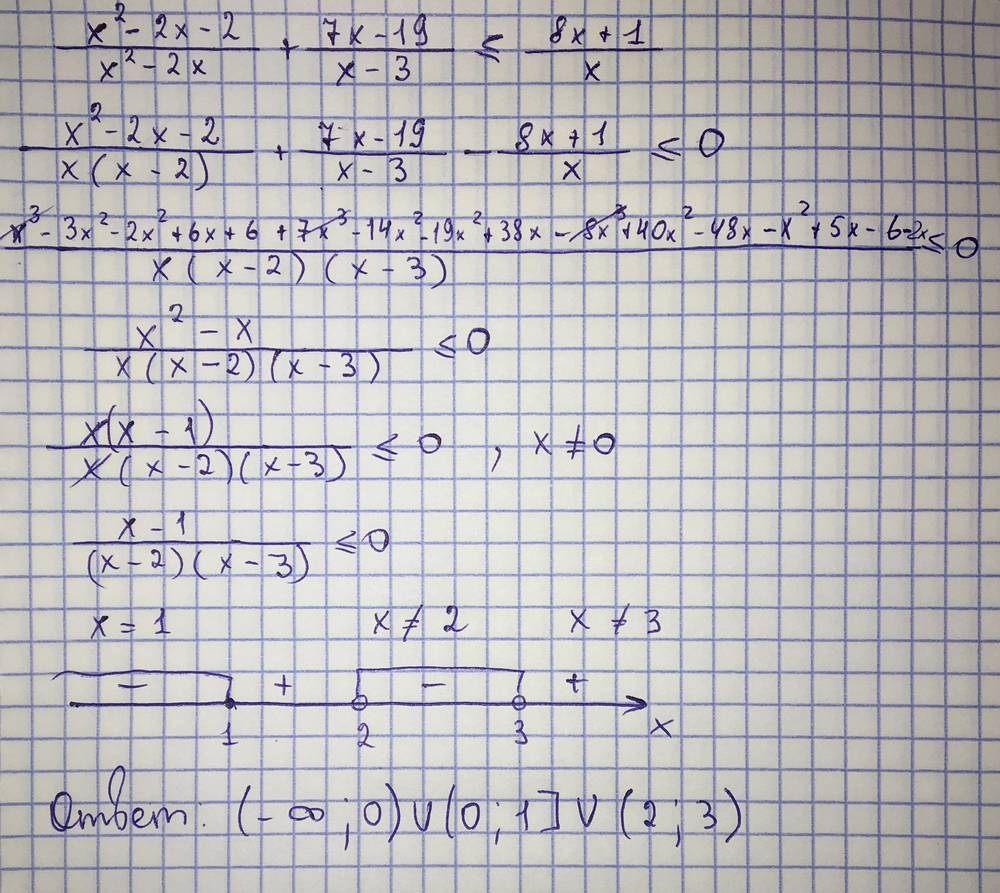 (x² - 2x - 2)/(x² - 2x) + (7x - 19)/(x - 3) ≤ (8x + 1)/x
(x² - 2x - 2)/(x(x - 2)) + (7x - 19)/(x - 3) - (8x + 1)/x ≤ 0
(x³ - 3x² - 2x² + 6x + 6 + 7x³ - 14x² - 19x² + 38x - 8x³ + 40x² - 48x - x² + 5x - 6 - 2x)/(x(x - 2)(x - 3)) ≤ 0
(x² - x)/(x(x - 2)(x - 3)) ≤ 0
(x(x - 1))/(x(x - 2)(x - 3)) ≤ 0 , x ≠ 0
(x - 1)/((x - 2)(x - 3)) ≤ 0
x = 1 x ≠ 2 x ≠ 3
- + - +
1 2 3 x
Ответ: (-∞; 0) ∪ (0; 1] ∪ (2; 3)